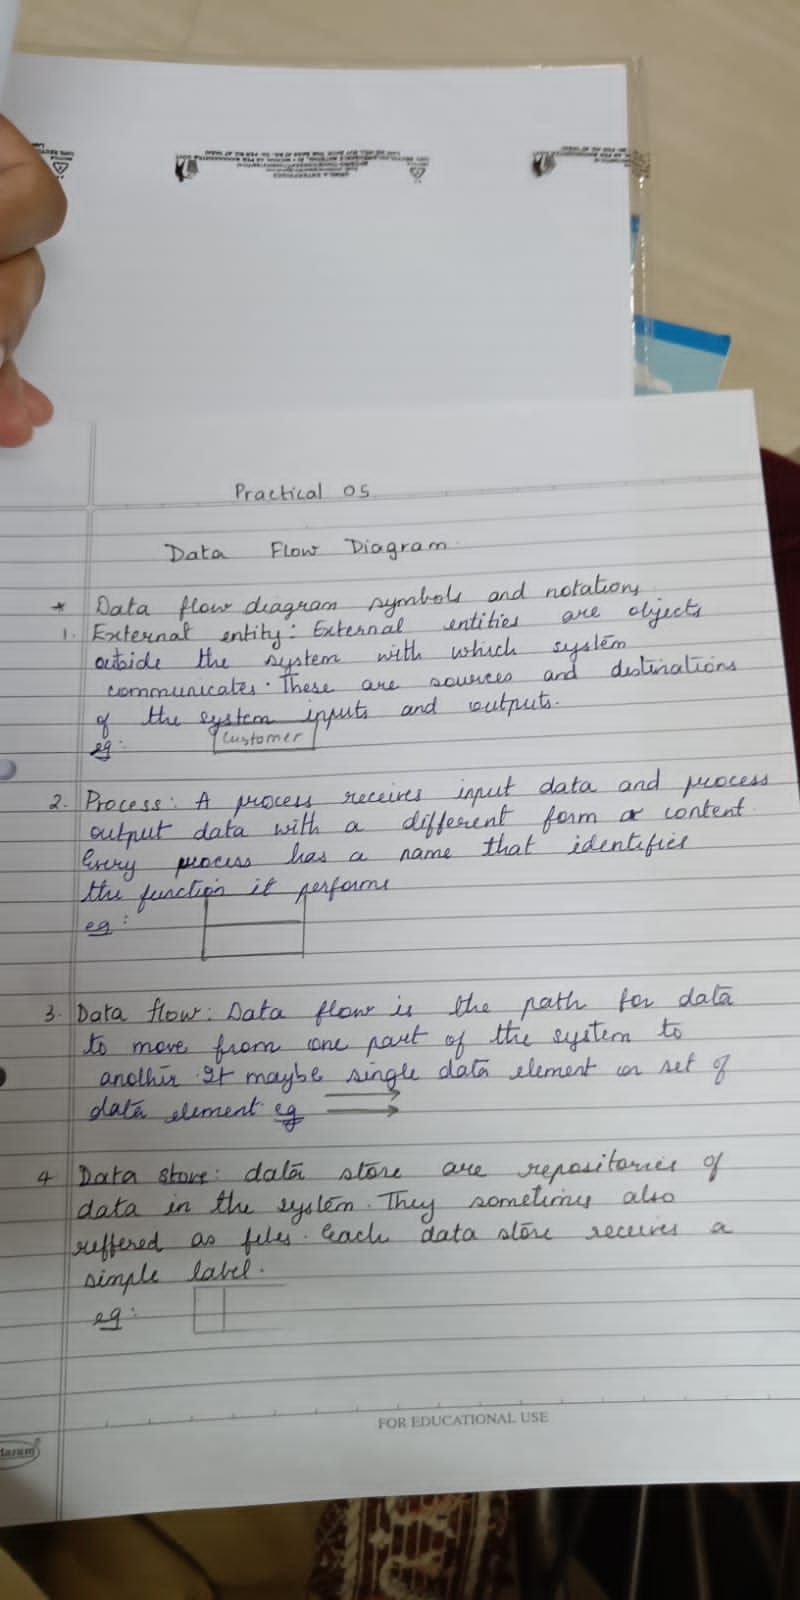 Practical 05
Data Flow Diagram
* Data flow diagram symbols and notations
1. External entity: External entities are objects
outside the system with which system
communicates. These are sources and destinations
of the system inputs and outputs.
eg: Customer
2. Process: A process receives input data and process
output data with a different form or content.
Every process has a name that identifies
the function it performs
eg:
3. Data flow: Data flow is the path for data
to move from one part of the system to
another. It maybe single data element or set of
data element eg
4 Data store: data store are repositories of
data in the system. They sometimes also
reffered as files. Each data store receives a
simple label.
eg:
FOR EDUCATIONAL USE